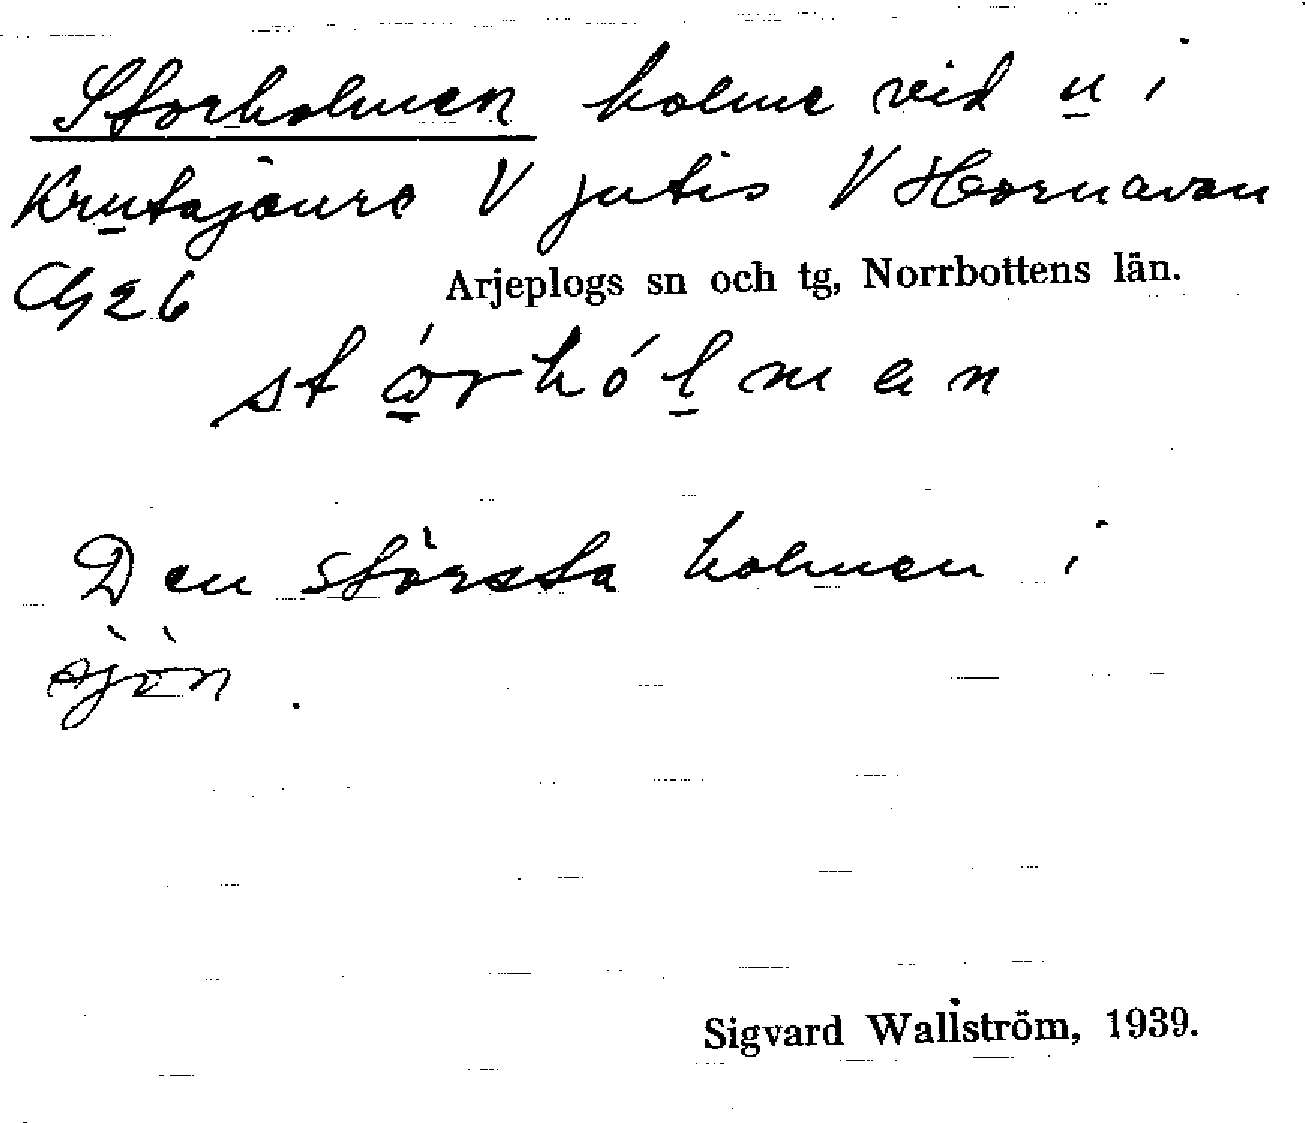 Storholmen holme vid u i
Krutajaure V Jutis V Hornavan
Cg 26 Arjeplogs sn och tg, Norrbottens län.
stó̱rhóḻman
Den största holmen i
sjön.
Sigvard Wallström, 1939.